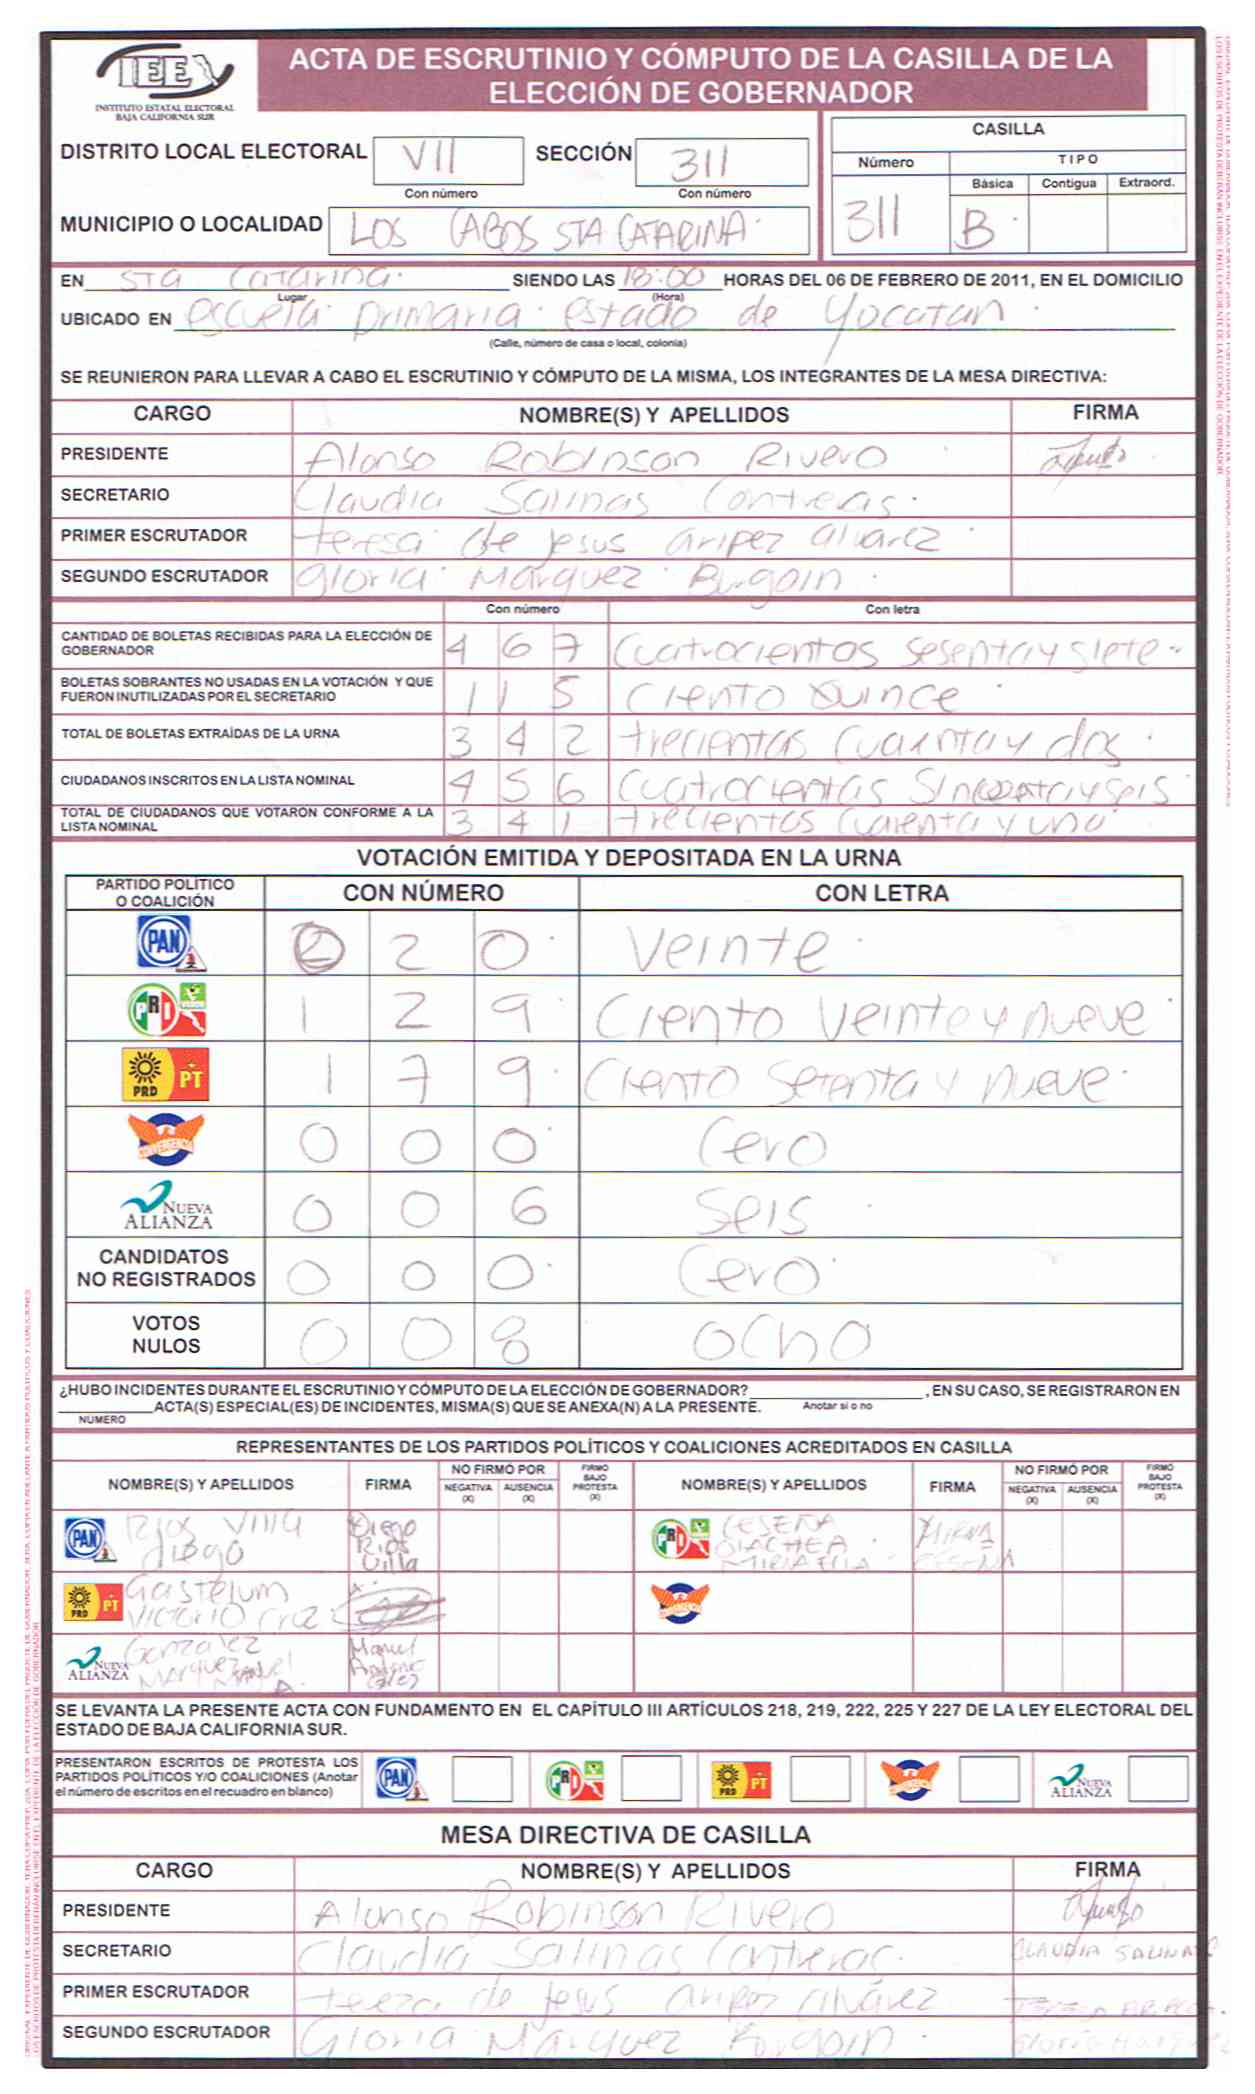 IEE
INSTITUTO ESTATAL ELECTORAL
BAJA CALIFORNIA SUR
ACTA DE ESCRUTINIO Y CÓMPUTO DE LA CASILLA DE LA
ELECCIÓN DE GOBERNADOR
DISTRITO LOCAL ELECTORAL VII SECCIÓN 311
Con número Con número
MUNICIPIO O LOCALIDAD LOS CABOS STA CATARINA
CASILLA
Número TIPO
Básica Contigua Extraord.
311 B
EN Sta Catarina SIENDO LAS 18:00 HORAS DEL 06 DE FEBRERO DE 2011, EN EL DOMICILIO
Lugar (Hora)
UBICADO EN escuela primaria estado de Yucatan
(Calle, número de casa o local, colonia)
SE REUNIERON PARA LLEVAR A CABO EL ESCRUTINIO Y CÓMPUTO DE LA MISMA, LOS INTEGRANTES DE LA MESA DIRECTIVA:
CARGO NOMBRE(S) Y APELLIDOS FIRMA
PRESIDENTE Alonso Robinson Rivero
SECRETARIO Claudia Salinas Contreras
PRIMER ESCRUTADOR teresa de jesus aripez alvarez
SEGUNDO ESCRUTADOR Gloria Marquez Burgoin
Con número Con letra
CANTIDAD DE BOLETAS RECIBIDAS PARA LA ELECCIÓN DE
GOBERNADOR 4 6 7 Cuatrocientos Sesenta y siete
BOLETAS SOBRANTES NO USADAS EN LA VOTACIÓN Y QUE
FUERON INUTILIZADAS POR EL SECRETARIO 1 1 5 Ciento Quince
TOTAL DE BOLETAS EXTRAÍDAS DE LA URNA 3 4 2 trecientas Cuarenta y dos
CIUDADANOS INSCRITOS EN LA LISTA NOMINAL 4 5 6 Cuatrocientas
TOTAL DE CIUDADANOS QUE VOTARON CONFORME A LA
LISTA NOMINAL 3 4 1 trecientos Cuarenta y uno
VOTACIÓN EMITIDA Y DEPOSITADA EN LA URNA
PARTIDO POLÍTICO
O COALICIÓN CON NÚMERO CON LETRA
PAN 2 0 Veinte
PRI VERDE 1 2 9 Ciento Veinte y nueve
PRD PT 1 7 9 Ciento Setenta y nueve
CONVERGENCIA 0 0 0 Cero
NUEVA ALIANZA 0 0 6 Seis
CANDIDATOS
NO REGISTRADOS 0 0 0 Cero
VOTOS
NULOS 0 0 8 ocho
¿HUBO INCIDENTES DURANTE EL ESCRUTINIO Y CÓMPUTO DE LA ELECCIÓN DE GOBERNADOR? , EN SU CASO, SE REGISTRARON EN
ACTA(S) ESPECIAL(ES) DE INCIDENTES, MISMA(S) QUE SE ANEXA(N) A LA PRESENTE. Anotar si o no
NUMERO
REPRESENTANTES DE LOS PARTIDOS POLÍTICOS Y COALICIONES ACREDITADOS EN CASILLA
NOMBRE(S) Y APELLIDOS FIRMA NO FIRMÓ POR NEGATIVA (X) AUSENCIA (X) FIRMÓ BAJO PROTESTA (X) NOMBRE(S) Y APELLIDOS FIRMA NO FIRMÓ POR NEGATIVA (X) AUSENCIA (X) FIRMÓ BAJO PROTESTA (X)
PAN Rios Villa diego Diego Rios Villa PRI CESEÑA MIRNA CESEÑA
PRD PT Gastelum Victorio Cruz CONVERGENCIA
NUEVA ALIANZA Gonzalez Marquez Manuel A. Manuel
SE LEVANTA LA PRESENTE ACTA CON FUNDAMENTO EN EL CAPÍTULO III ARTÍCULOS 218, 219, 222, 225 Y 227 DE LA LEY ELECTORAL DEL
ESTADO DE BAJA CALIFORNIA SUR.
PRESENTARON ESCRITOS DE PROTESTA LOS
PARTIDOS POLÍTICOS Y/O COALICIONES (Anotar
el número de escritos en el recuadro en blanco) PAN PRI PRD PT CONVERGENCIA NUEVA ALIANZA
MESA DIRECTIVA DE CASILLA
CARGO NOMBRE(S) Y APELLIDOS FIRMA
PRESIDENTE Alonso Robinson Rivero
SECRETARIO Claudia Salinas Contreras CLAUDIA SALINAS
PRIMER ESCRUTADOR de jesus aripez alvárez
SEGUNDO ESCRUTADOR Gloria Marquez Burgoin Gloria Marquez